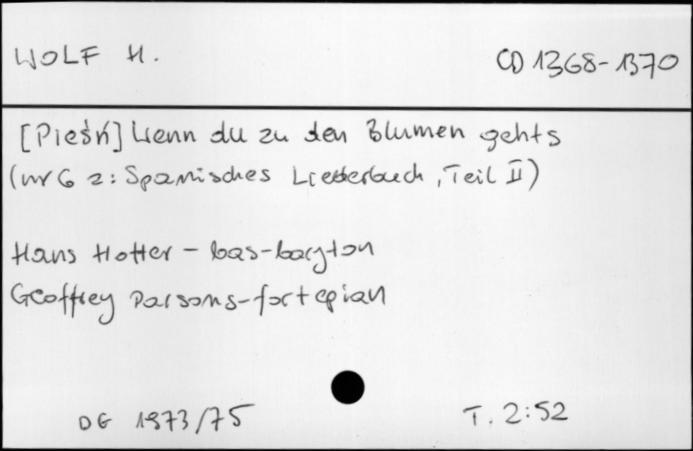 WOLF H. CD 1368-1370
[Pieśń] Wenn du zu den Blumen gehts
(nr 6 z: Spanisches Liederbuch, Teil II)
Hans Hotter - bas-baryton
Geoffrey Parsons-fortepian
DG 1973/75 T. 2:52